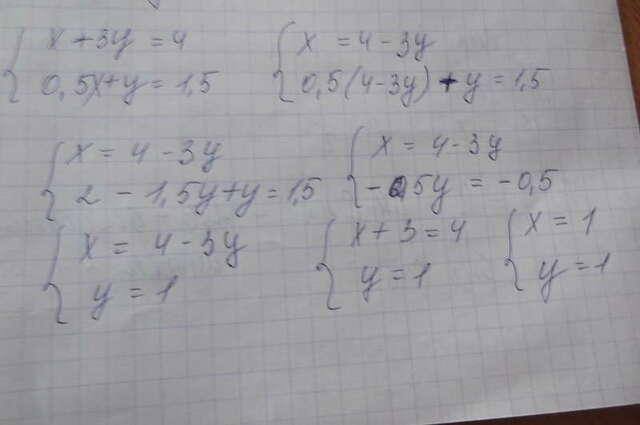 x + 3y = 4
0,5x + y = 1,5
x = 4 - 3y
0,5(4 - 3y) + y = 1,5
x = 4 - 3y
2 - 1,5y + y = 1,5
x = 4 - 3y
-0,5y = -0,5
x = 4 - 3y
y = 1
x + 3 = 4
y = 1
x = 1
y = 1